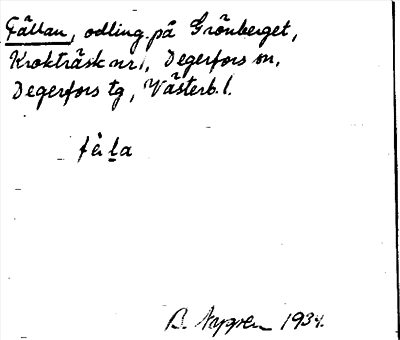 Fällan, odling på Grönberget,
Krokträsk nr 1, Degerfors sn,
Degerfors tg, Västerb. l.
fèḷa
B. Nygren 1934.